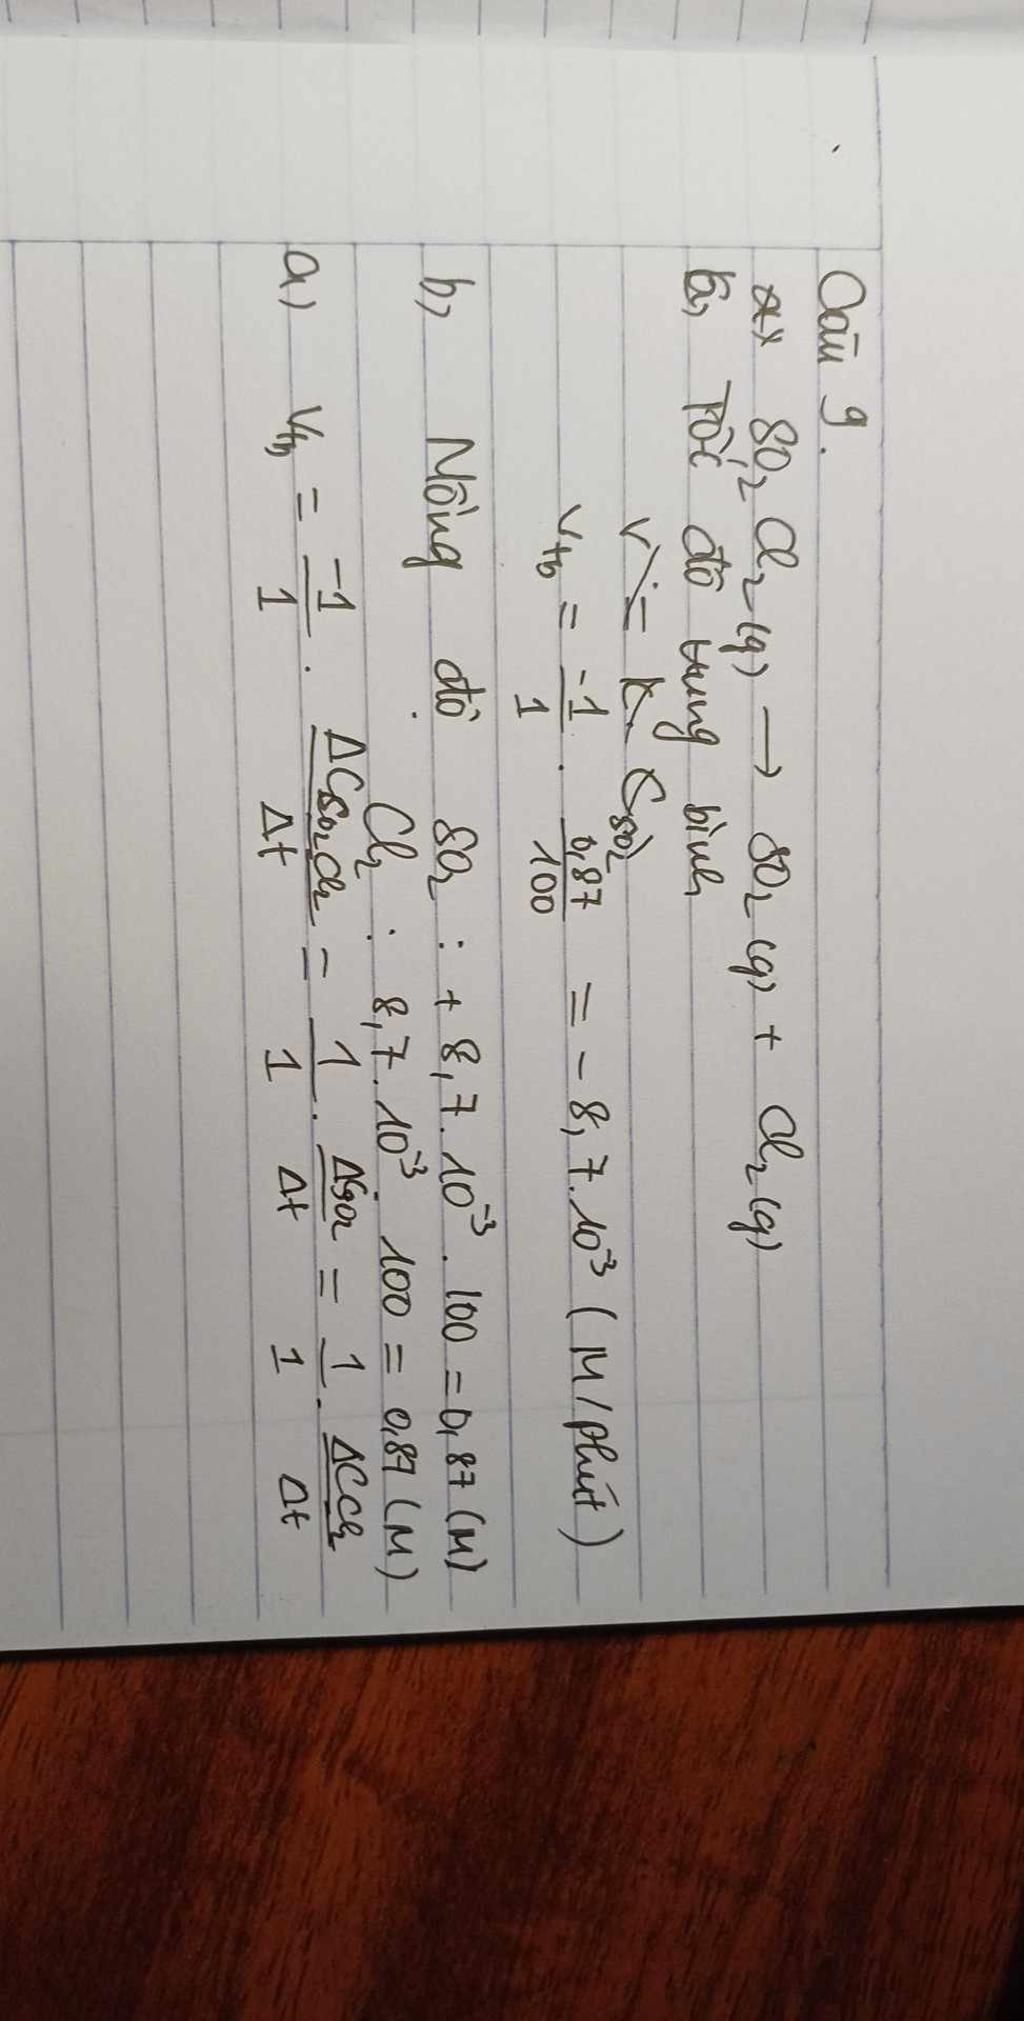 Câu 9.
a, SO₂Cl₂(g) → SO₂(g) + Cl₂(g)
b, Tốc độ trung bình
v = k. C SO₂
Vtb = -1/1 . 0,87/100 = - 8,7.10⁻³ (M/phút)
b, Nồng độ SO₂ : + 8,7.10⁻³ . 100 = 0,87 (M)
Cl₂ : 8,7.10⁻³. 100 = 0,87 (M)
a, Vtb = -1/1 . ΔC SO₂Cl₂/Δt = 1/1 . ΔSO₂/Δt = 1/1 . ΔC Cl₂/Δt